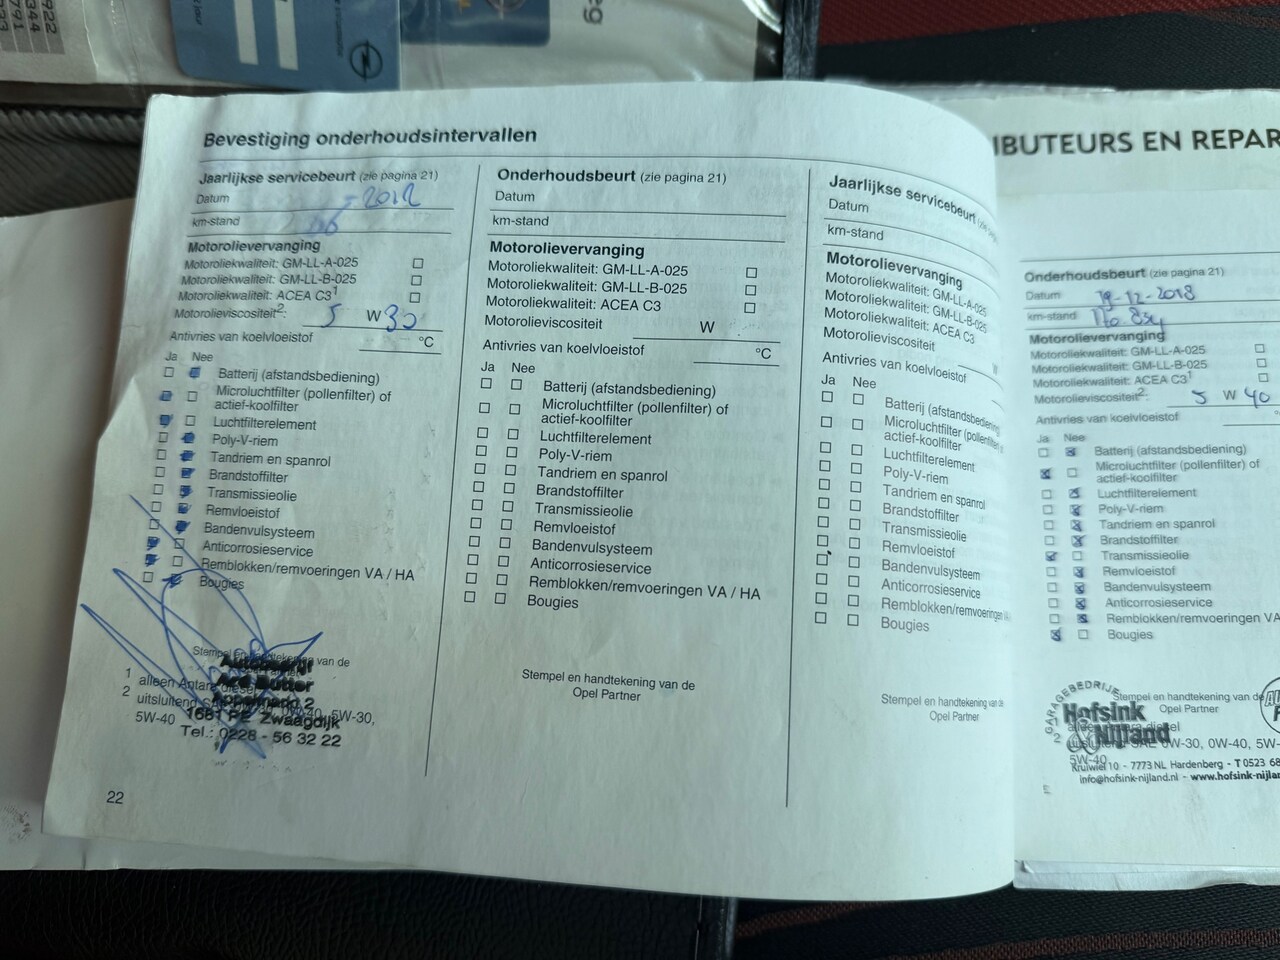 Bevestiging onderhoudsintervallen
Jaarlijkse servicebeurt (zie pagina 21)
Datum -2012
km-stand
Motorolievervanging
Motoroliekwaliteit: GM-LL-A-025
Motoroliekwaliteit: GM-LL-B-025
Motoroliekwaliteit: ACEA C3¹
Motorolieviscositeit²: 5 W 30
Antivries van koelvloeistof °C
Ja Nee
Batterij (afstandsbediening)
Microluchtfilter (pollenfilter) of
actief-koolfilter
Luchtfilterelement
Poly-V-riem
Tandriem en spanrol
Brandstoffilter
Transmissieolie
Remvloeistof
Bandenvulsysteem
Anticorrosieservice
Remblokken/remvoeringen VA / HA
Bougies
Stempel en handtekening van de
1 alleen Antara diesel
2 5W-30,
5W-40
Autobedrijf
2
1681 PE Zwaagdijk
Tel.: 0228 - 56 32 22
22
Onderhoudsbeurt (zie pagina 21)
Datum
km-stand
Motorolievervanging
Motoroliekwaliteit: GM-LL-A-025
Motoroliekwaliteit: GM-LL-B-025
Motoroliekwaliteit: ACEA C3
Motorolieviscositeit W
Antivries van koelvloeistof °C
Ja Nee
Batterij (afstandsbediening)
Microluchtfilter (pollenfilter) of
actief-koolfilter
Luchtfilterelement
Poly-V-riem
Tandriem en spanrol
Brandstoffilter
Transmissieolie
Remvloeistof
Bandenvulsysteem
Anticorrosieservice
Remblokken/remvoeringen VA / HA
Bougies
Stempel en handtekening van de
Opel Partner
Jaarlijkse servicebeurt
Datum
km-stand
Motorolievervanging
Motoroliekwaliteit: GM-LL-A-025
Motoroliekwaliteit: GM-LL-B-025
Motoroliekwaliteit: ACEA C3
Motorolieviscositeit
Antivries van koelvloeistof
Ja Nee
Batterij (afstandsbediening
Microluchtfilter (pollenfilter)
actief-koolfilter
Luchtfilterelement
Poly-V-riem
Tandriem en spanrol
Brandstoffilter
Transmissieolie
Remvloeistof
Bandenvulsysteem
Anticorrosieservice
Remblokken/remvoeringen
Bougies
Stempel en handtekening van de
Opel Partner
IBUTEURS EN REPAR
Onderhoudsbeurt (zie pagina 21)
Datum 19-12-2018
km-stand
Motorolievervanging
Motoroliekwaliteit: GM-LL-A-025
Motoroliekwaliteit: GM-LL-B-025
Motoroliekwaliteit: ACEA C3¹
Motorolieviscositeit²: 5 W 40
Antivries van koelvloeistof
Ja Nee
Batterij (afstandsbediening)
Microluchtfilter (pollenfilter) of
actief-koolfilter
Luchtfilterelement
Poly-V-riem
Tandriem en spanrol
Brandstoffilter
Transmissieolie
Remvloeistof
Bandenvulsysteem
Anticorrosieservice
Remblokken/remvoeringen VA
Bougies
Stempel en handtekening van de
Opel Partner
GARAGEBEDRIJF
Hofsink
& Nijland
alleen Antara diesel
2 uitsluitend SAE 0W-30, 0W-40, 5W-
5W-40
Kruiwiel 10 - 7773 NL Hardenberg - T 0523 68
info@hofsink-nijland.nl - www.hofsink-nijla